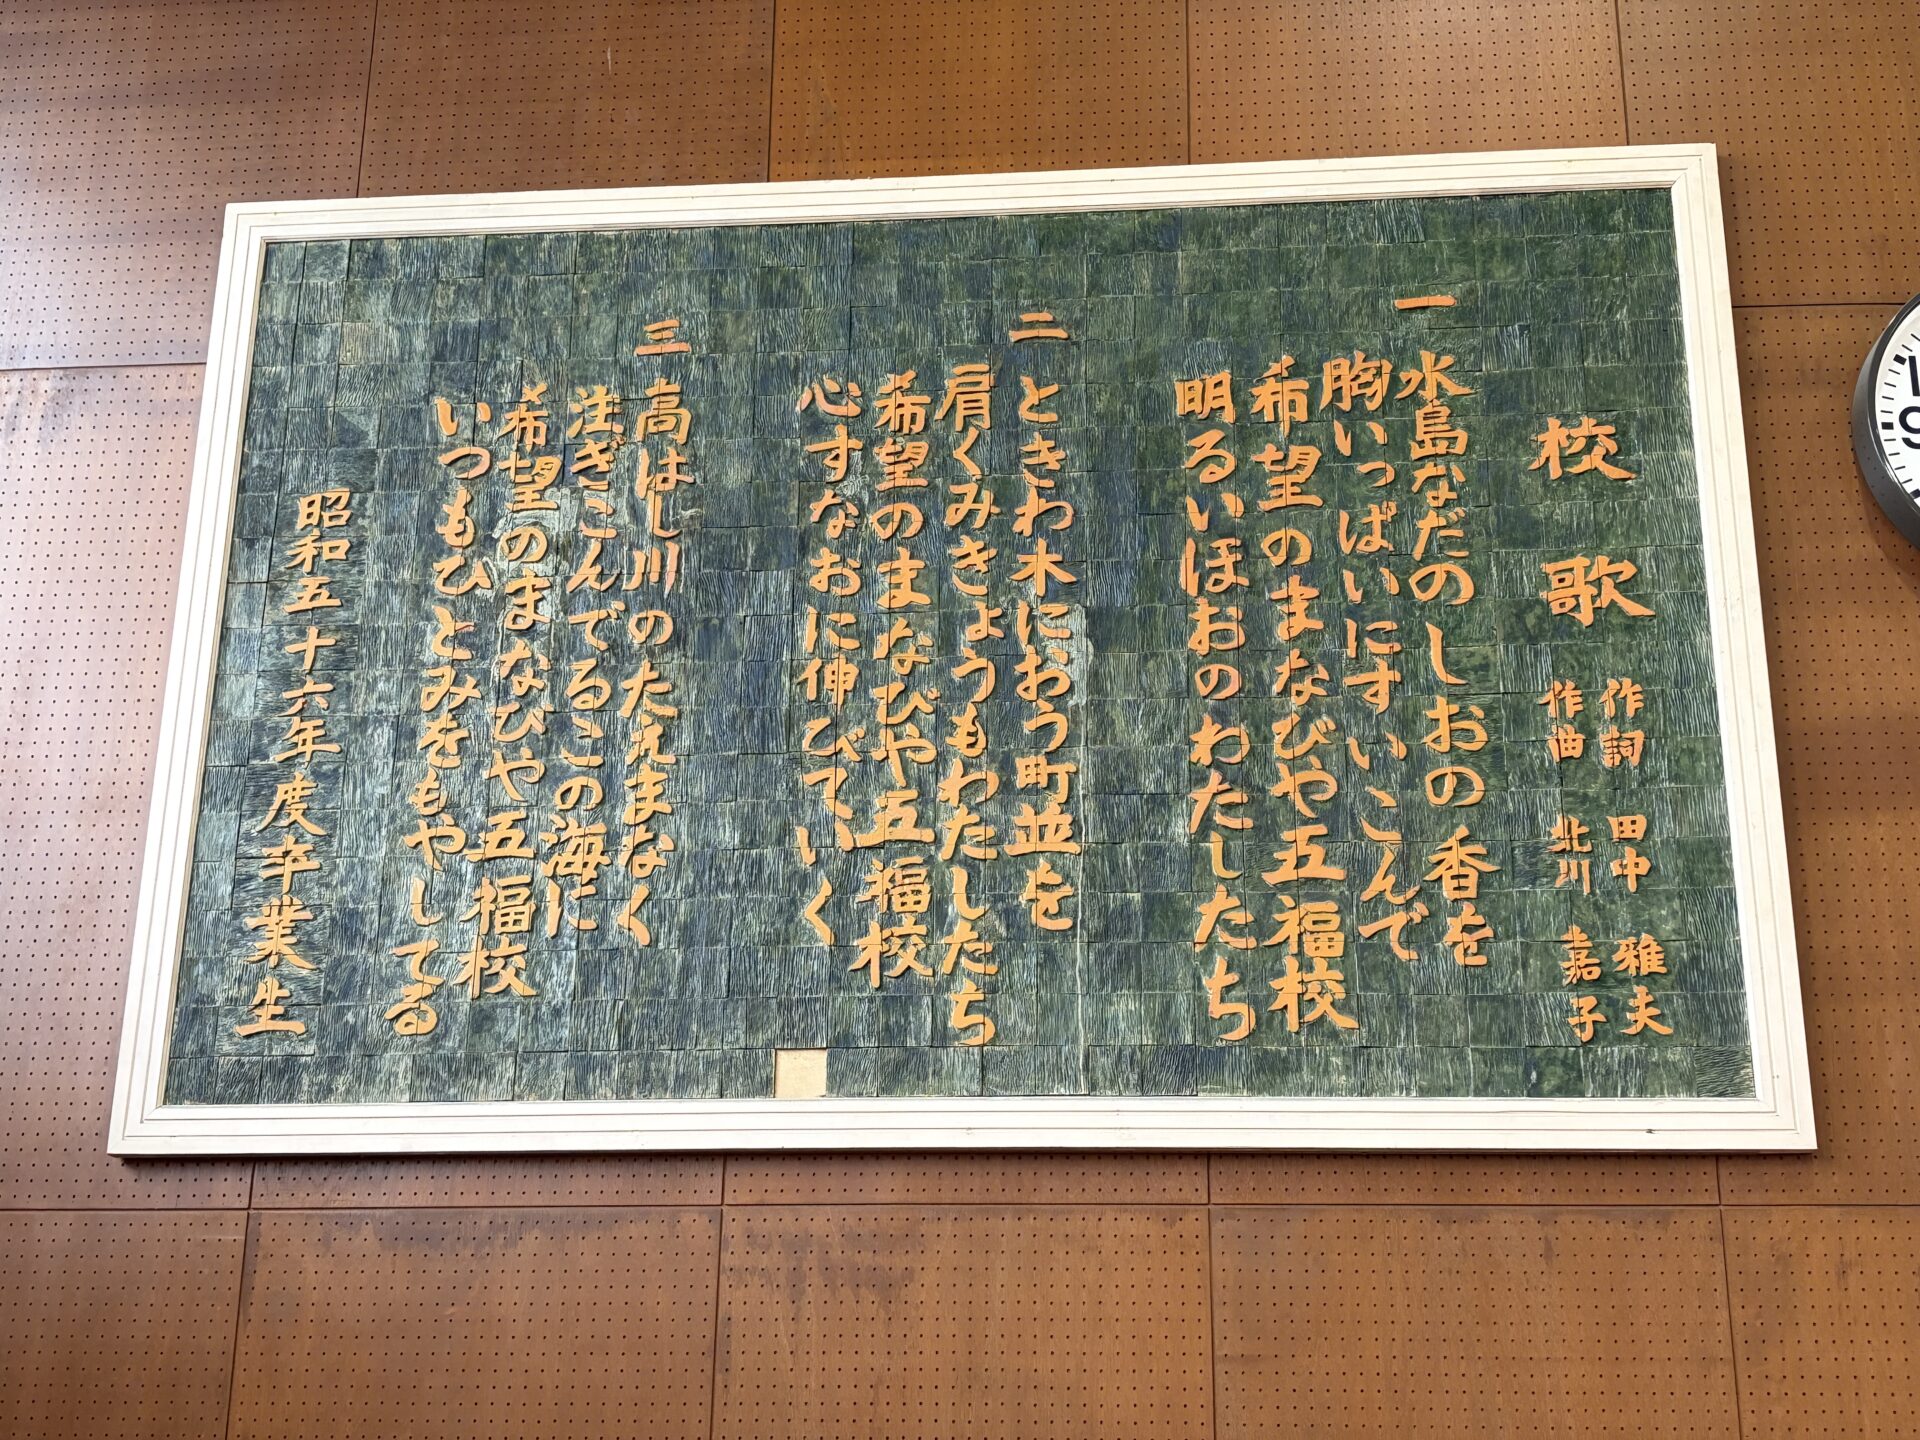 校歌
作詞 田中 雅夫
作曲 北川 嘉子
一
水島なだのしおの香を
胸いっぱいにすいこんで
希望のまなびや五福校
明るいほおのわたしたち
二
ときわ木におう町並を
肩くみきょうもわたしたち
希望のまなびや五福校
心すなおに伸びていく
三
高はし川のたえまなく
注ぎこんでるこの海に
希望のまなびや五福校
いつもひとみをもやしてる
昭和五十六年度卒業生
9